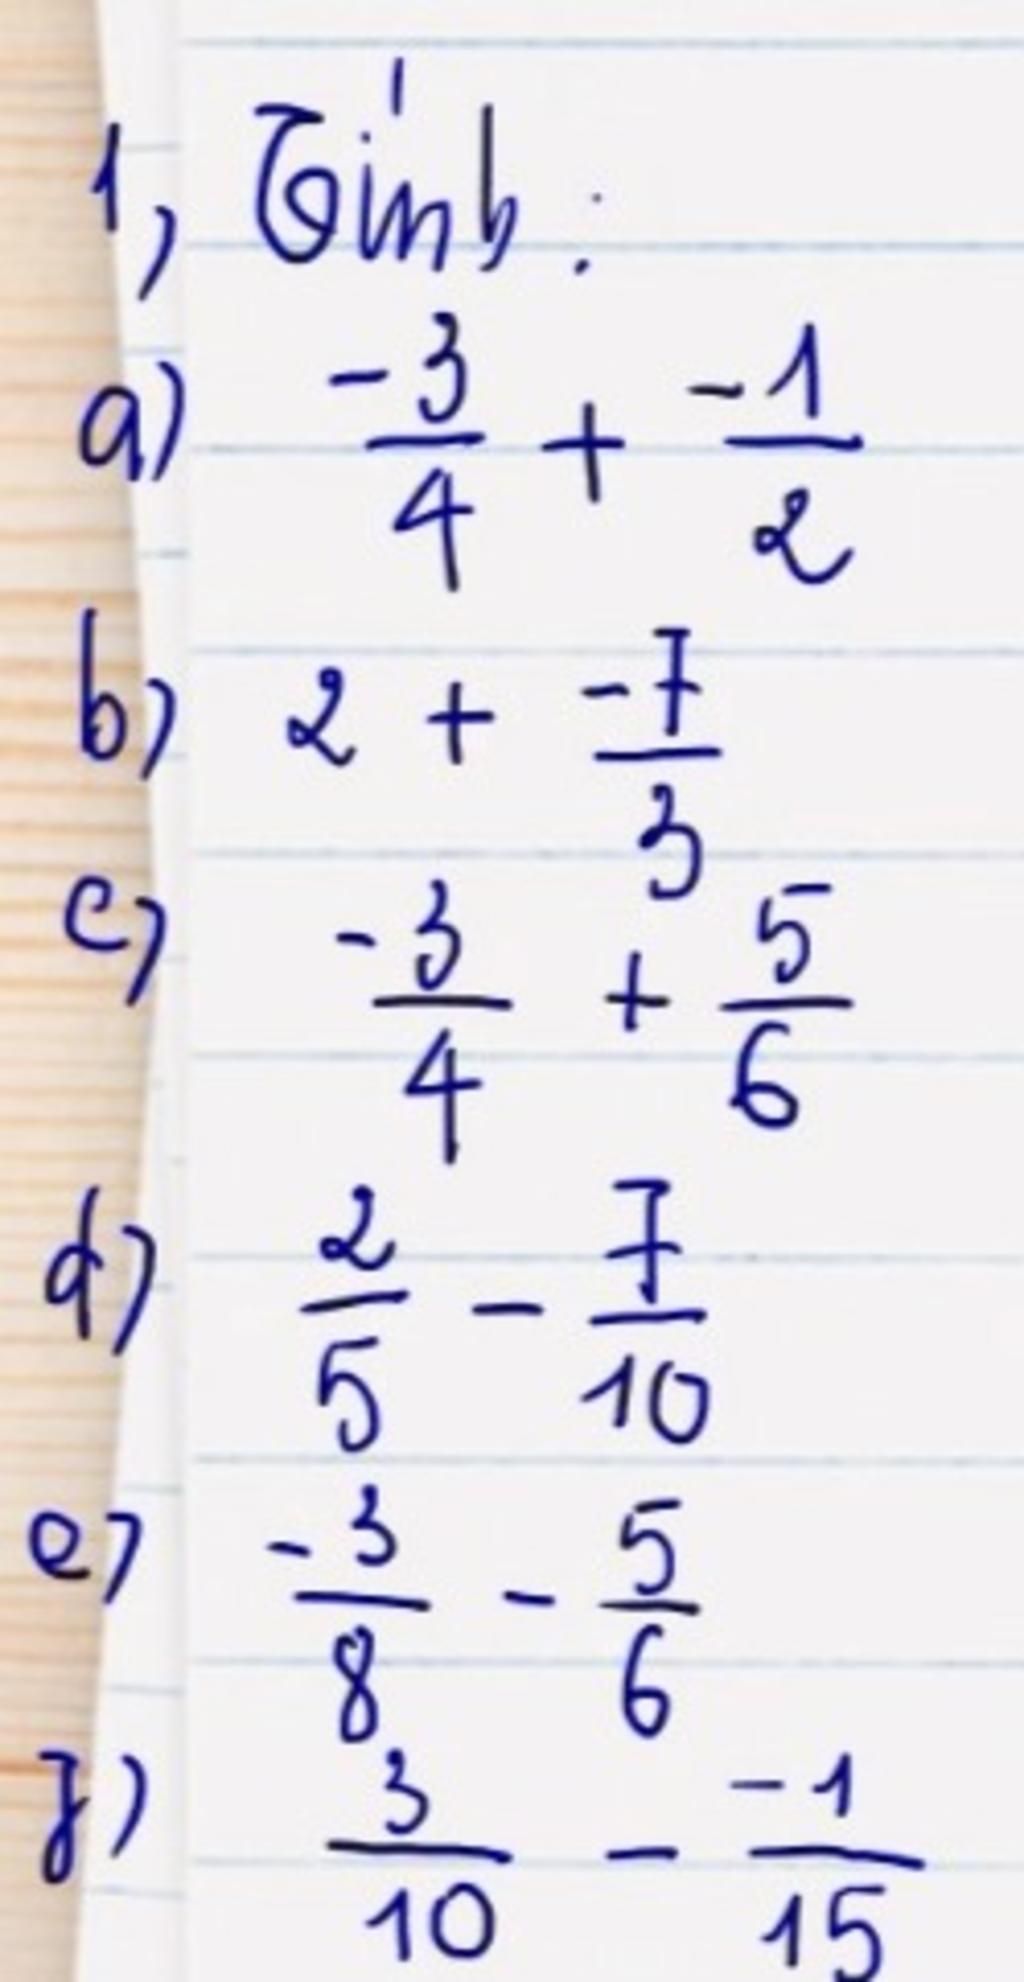 1, Tính:
a) -3/4 + -1/2
b) 2 + -7/3
c) -3/4 + 5/6
d) 2/5 - 7/10
e) -3/8 - 5/6
f) 3/10 - -1/15